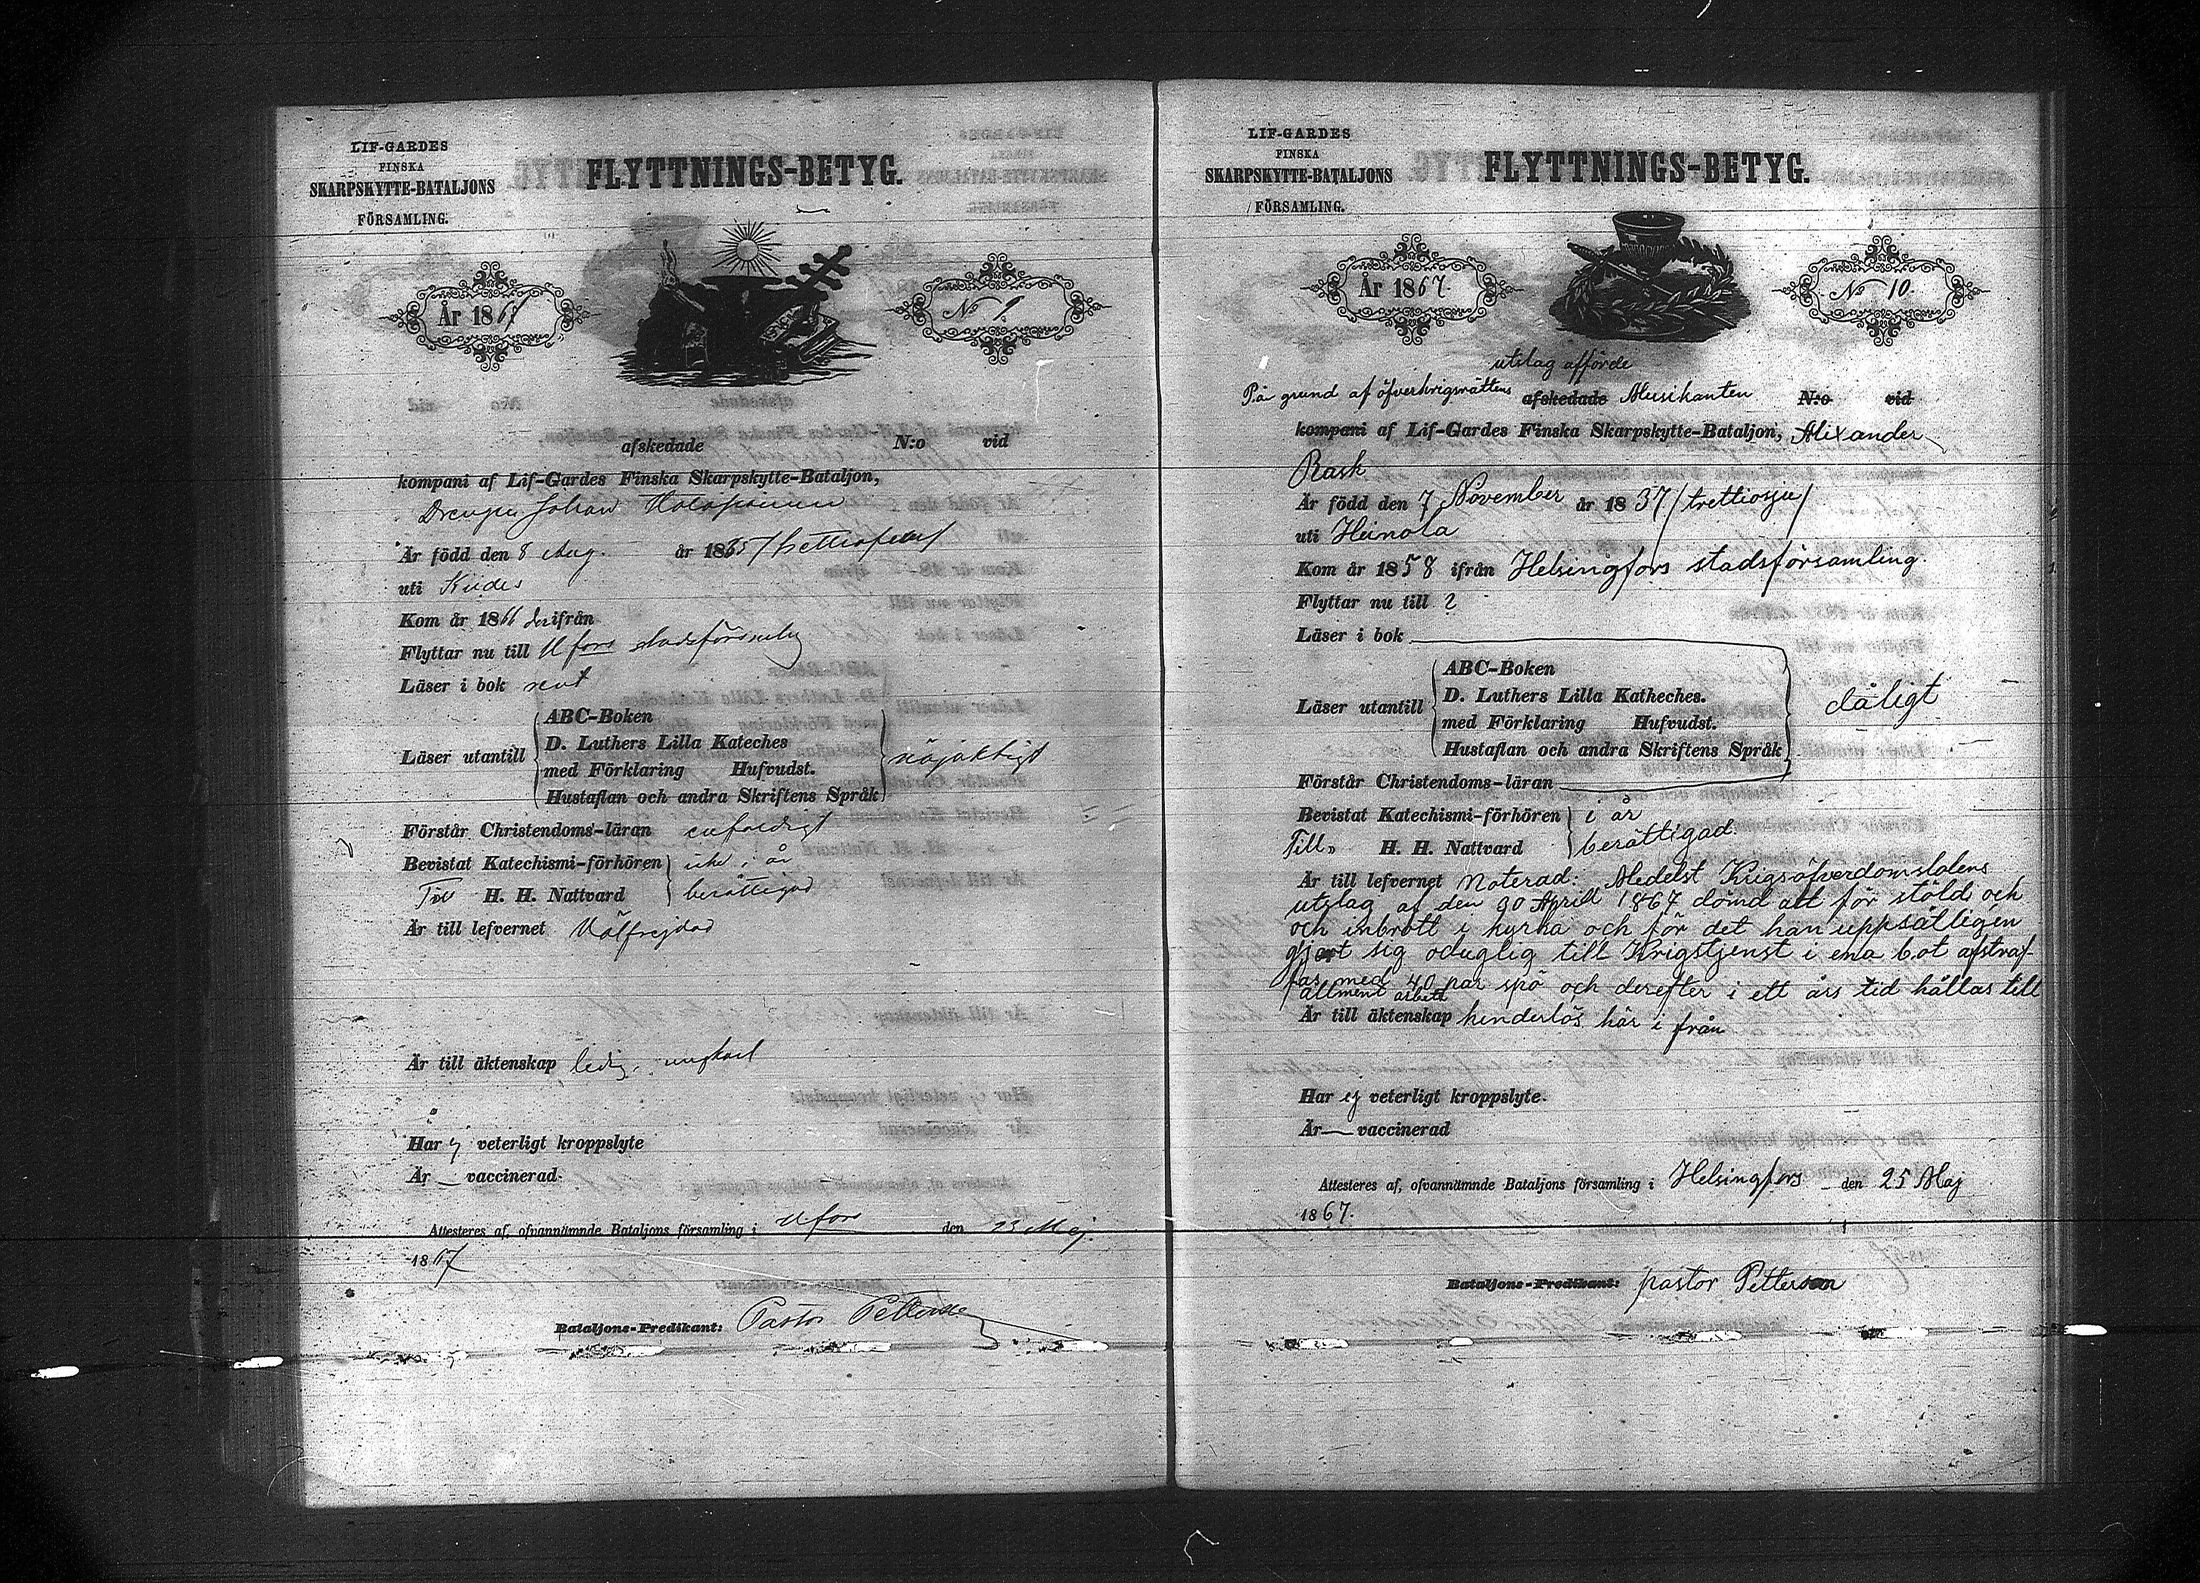 LIF-GARDES
FINSKA
SKARPSKYTTE-BATALJONS
FÖRSAMLING.
FLYTTNINGS-BETYG.
År 1867
No 9.
afskedade N:o vid
kompani af Lif-Gardes Finska Skarpskytte-Bataljon,
Drengen Johan Holopainen
Är född den 8 Aug. år 1835/trettiofem/
uti Kides
Kom år 1866 derifrån
Flyttar nu till Hfors stadsförsamling
Läser i bok rent
Läser utantill
ABC-Boken
D. Luthers Lilla Kateches
med Förklaring Hufvudst.
Hustaflan och andra Skriftens Språk
nöjaktigt
Förstår Christendoms-läran enfaldigt
Bevistat Katechismi-förhören icke i år
Till H. H. Nattvard berättigad
Är till lefvernet Välfrejdad
Är till äktenskap ledig, ungkarl
Har ej veterligt kroppslyte
Är — vaccinerad.
Attesteres af, ofvannämnde Bataljons församling i Hfors den 23 Maj.
1867
Bataljons-Predikant: Pastor Petterson
LIF-GARDES
FINSKA
SKARPSKYTTE-BATALJONS
FÖRSAMLING.
FLYTTNINGS-BETYG.
År 1867.
No 10.
utslag afförde
På grund af öfverkrigsrättens afskedade Musikanten N:o vid
kompani af Lif-Gardes Finska Skarpskytte-Bataljon, Alexander
Rask
Är född den 7 November år 1837/trettiosju/
uti Heinola
Kom år 1858 ifrån Helsingfors stadsförsamling.
Flyttar nu till ?
Läser i bok
Läser utantill
ABC-Boken
D. Luthers Lilla Katheches.
med Förklaring Hufvudst.
Hustaflan och andra Skriftens Språk
dåligt
Förstår Christendoms-läran
Bevistat Katechismi-förhören i år
Till H. H. Nattvard berättigad.
Är till lefvernet Noterad: Medelst Krigsöfverdomstolens
utslag af den 30 April 1867 dömd att för stöld och
och inbrott i kyrka och för det han uppsåtligen
gjort sig oduglig till Krigstjenst i ena bot afstraf-
fas med 40 par spö och derefter i ett års tid hållas till
allmänt arbete
Är till äktenskap hinderlös här i från
Har ej veterligt kroppslyte.
Är — vaccinerad
Attesteres af, ofvannämnde Bataljons församling i Helsingfors den 25 Maj
1867.
Bataljons-Predikant: pastor Petterson